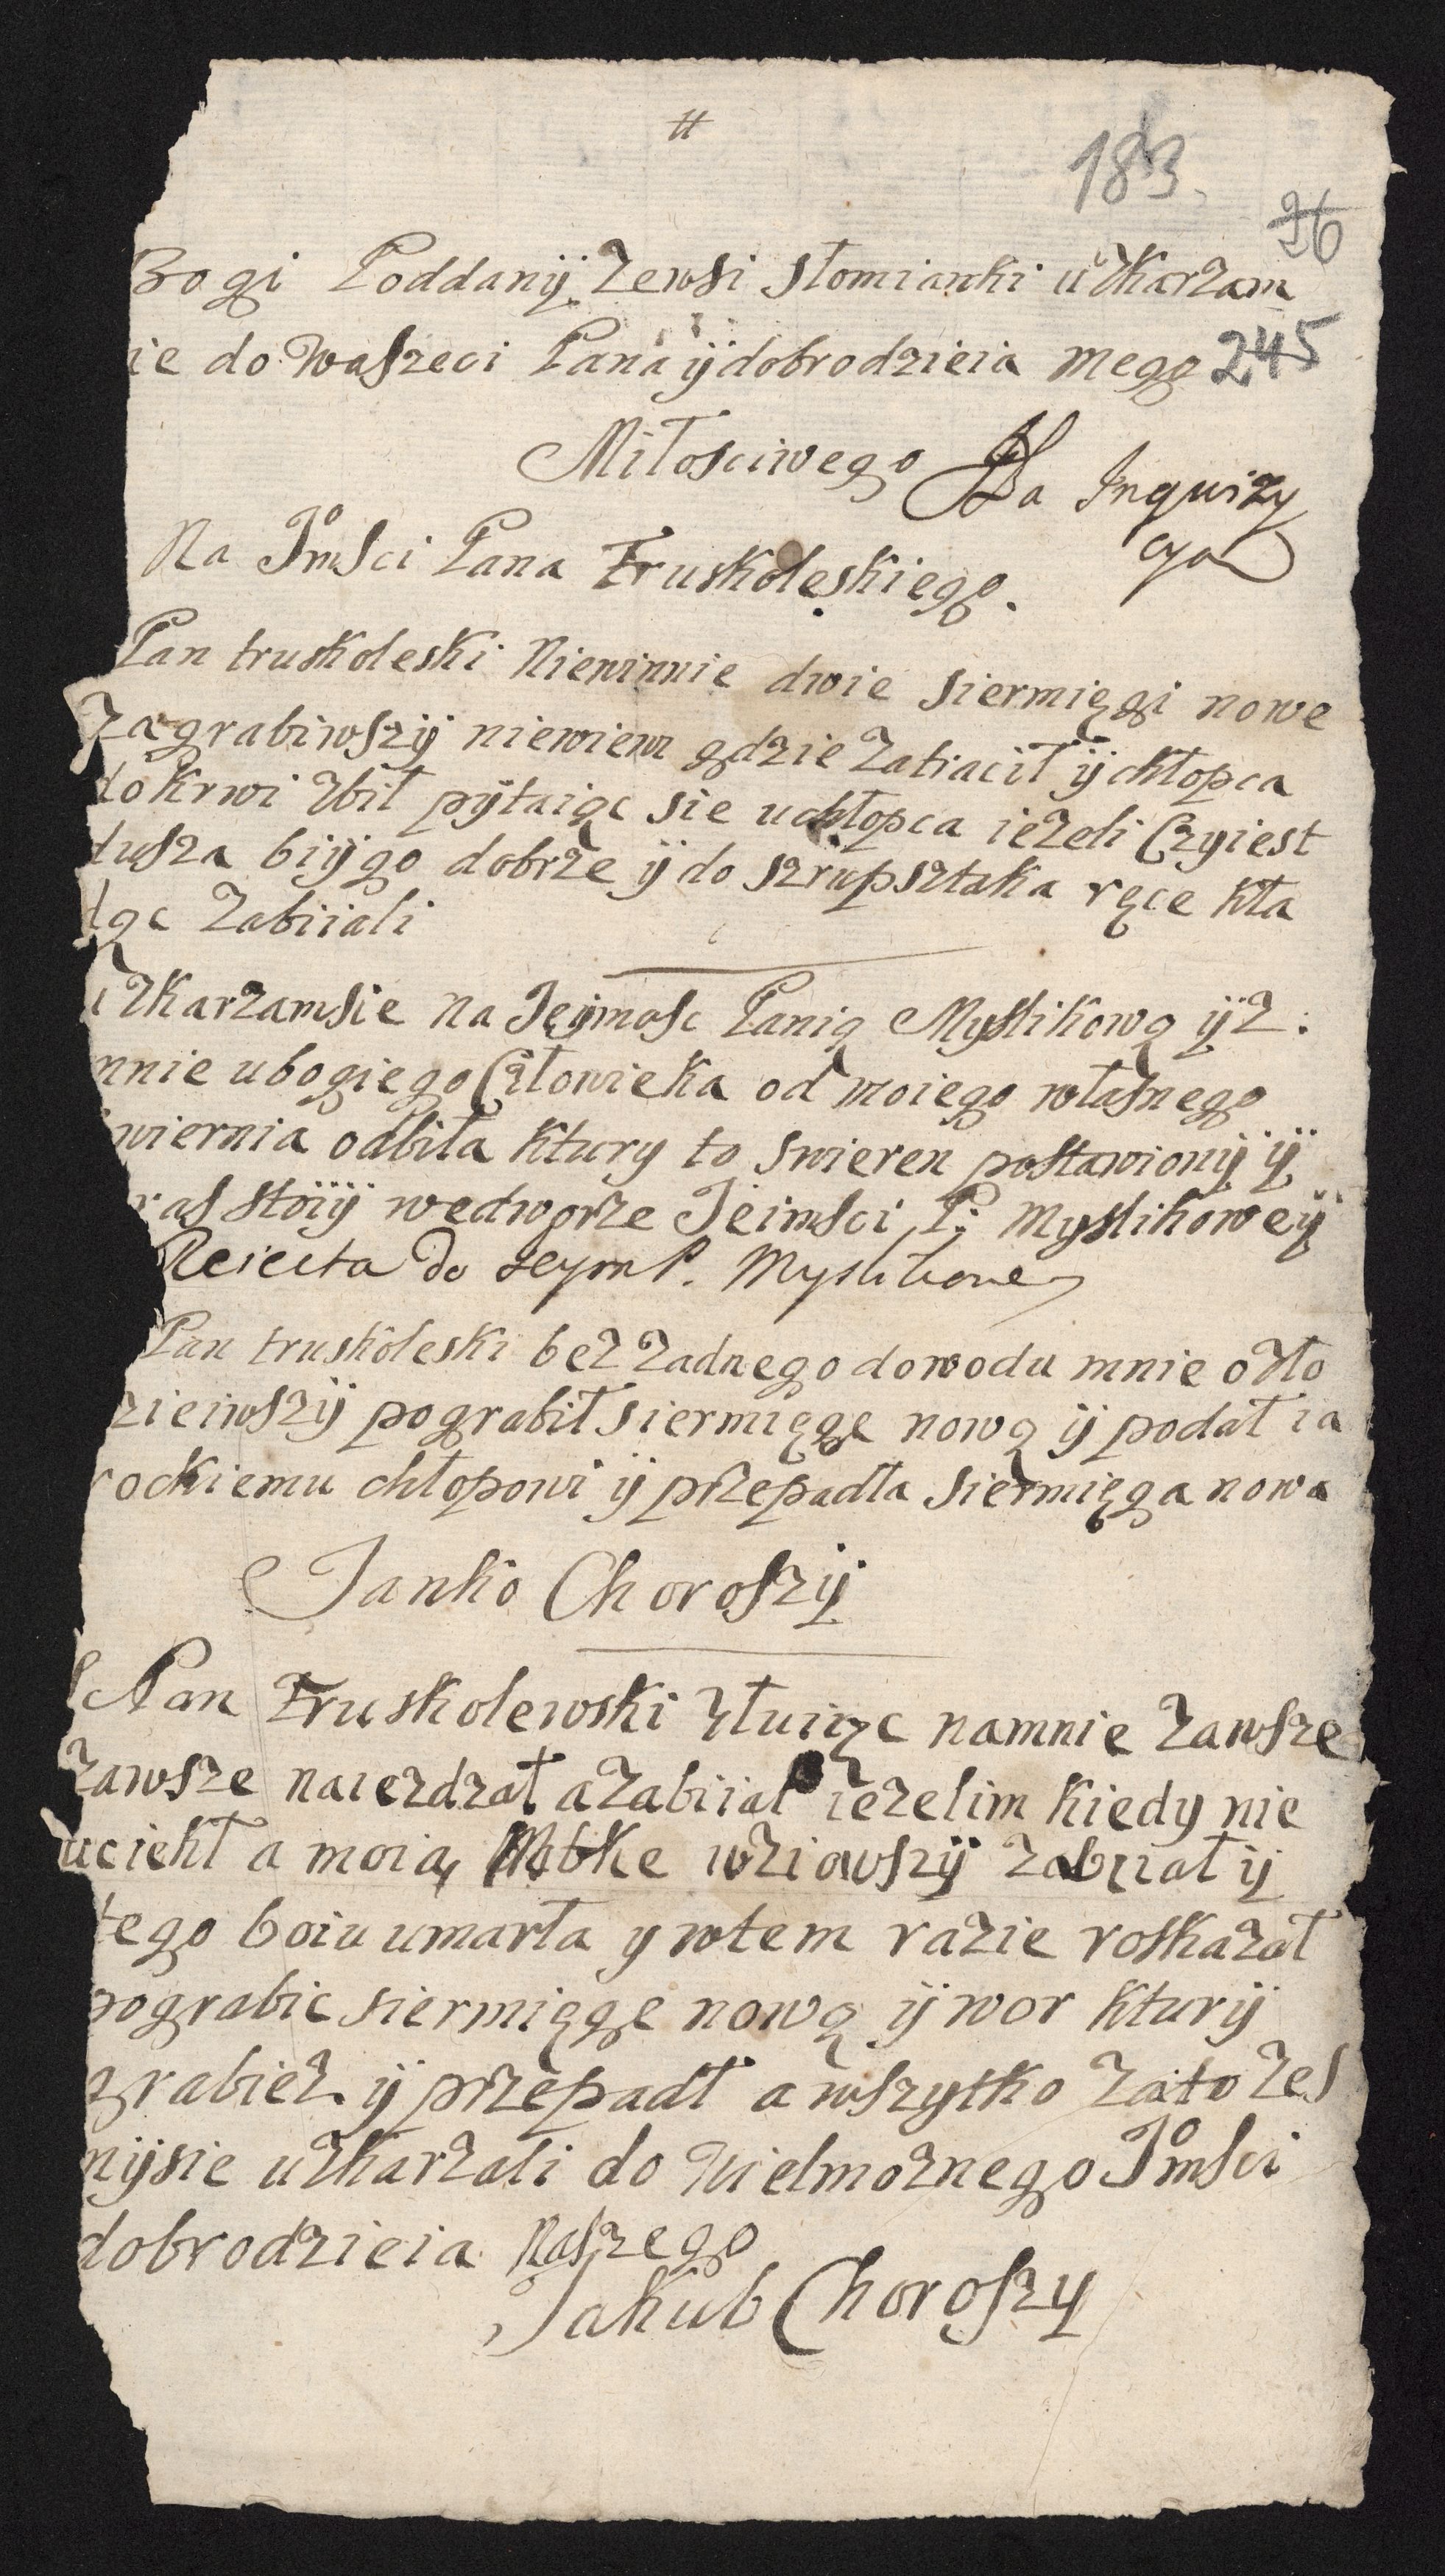 #
183.
26
Bogi Poddanÿ zewsi Słomianki uzkarzam
ie do Waszeci Pana ÿ dobrodzieia mego
245
Miłosciwego
Da Inquizy
cya
Na Jmsci Pana Truskoleskiego.
Pan truskoleski Niewinnie dwie siermięgi nowe
zagrabiwszÿ niewiem gdzie zatracił ÿ chłopca
do krwi zbił pÿtaiąc sie uchłopca ieżeli Czyiest
dusza biÿgo dobrze ÿ do szrupsztaka ręce kła
dąc zabiiali
uzkarzamsie na Jeÿmosc Panią Myslikową ÿz:
mnie ubogiego Człowieka od moiego własnego
swiernia odbiła ktury to swieren postawionÿ ÿ
ras stoiÿ wedworze Jeimsci P: Myslikoweÿ
Reiecta do Jeym P. Myslikowey
Pan truskoleski bez zadnego dowodu mnie ozło
zieiwszÿ pograbił siermięgę nową ÿ podał ia
rockiemu chłopowi ÿ przepadła siermięga nowa
Janko Choroszÿ
Pan Truskolewski złuiąc namnie zawsze
zawsze naiezdzał a zabiiał iezelim kiedy nie
uciekł a moią Matke wziowszÿ zabiiał ÿ
tego boiu umarła y wtem razie roskazał
pograbic siermięgę nową ÿ wor kturÿ
grabiez ÿ przepadł a wszytko zato zes
mÿsie uzkarzali do Wielmoznego Jmsci
dobrodzieia Naszego
Jakub Choroszy